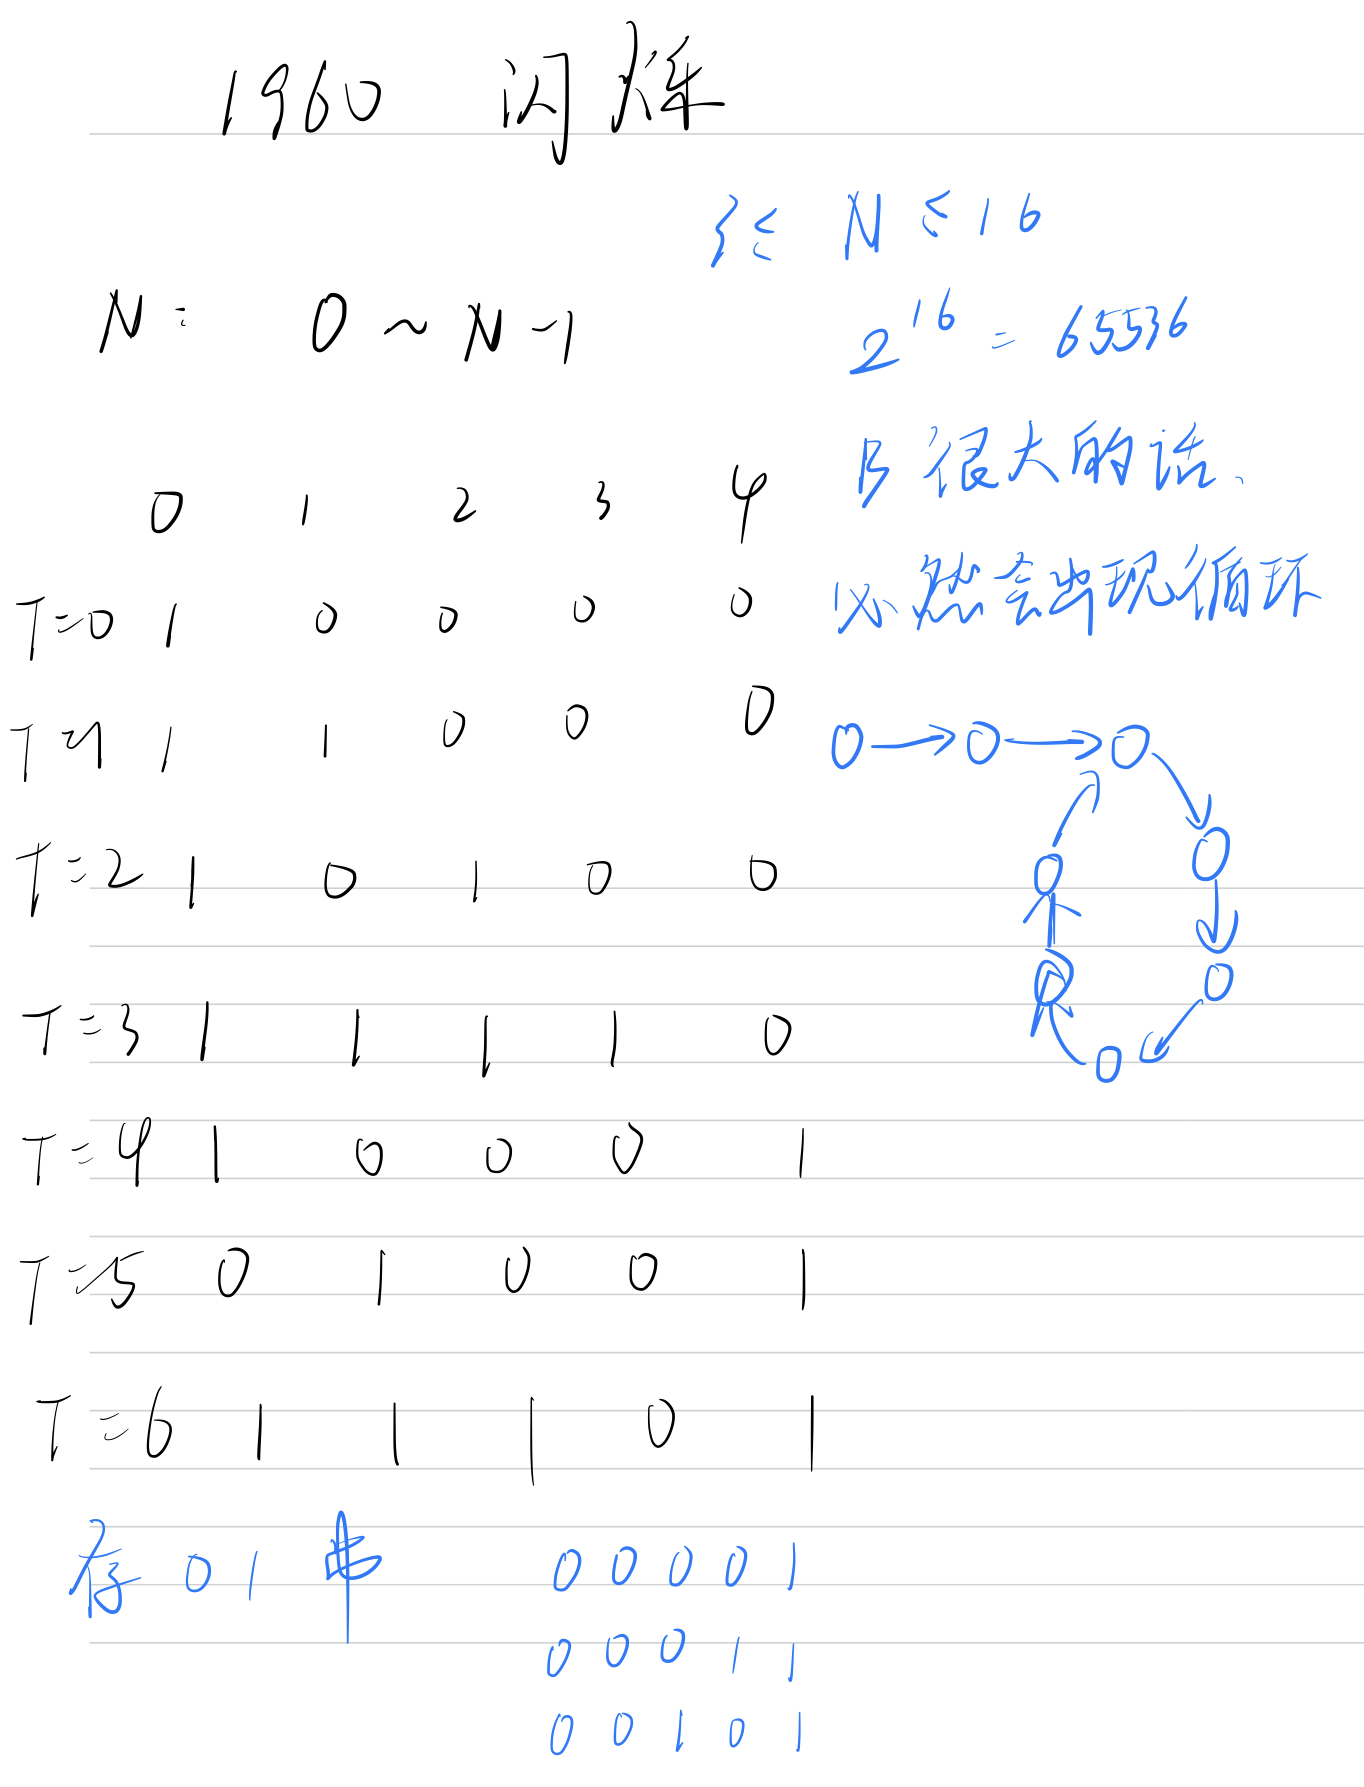 1960 闪烁
3 ≤ N ≤ 16
N: 0 ~ N-1
2^16 = 65536
B 很大的话、
0 1 2 3 4
必然会出现循环
T=0 1 0 0 0 0
T=1 1 1 0 0 0
T=2 1 0 1 0 0
T=3 1 1 1 1 0
T=4 1 0 0 0 1
T=5 0 1 0 0 1
T=6 1 1 1 0 1
存 0 1 串 0 0 0 0 1
0 0 0 1 1
0 0 1 0 1